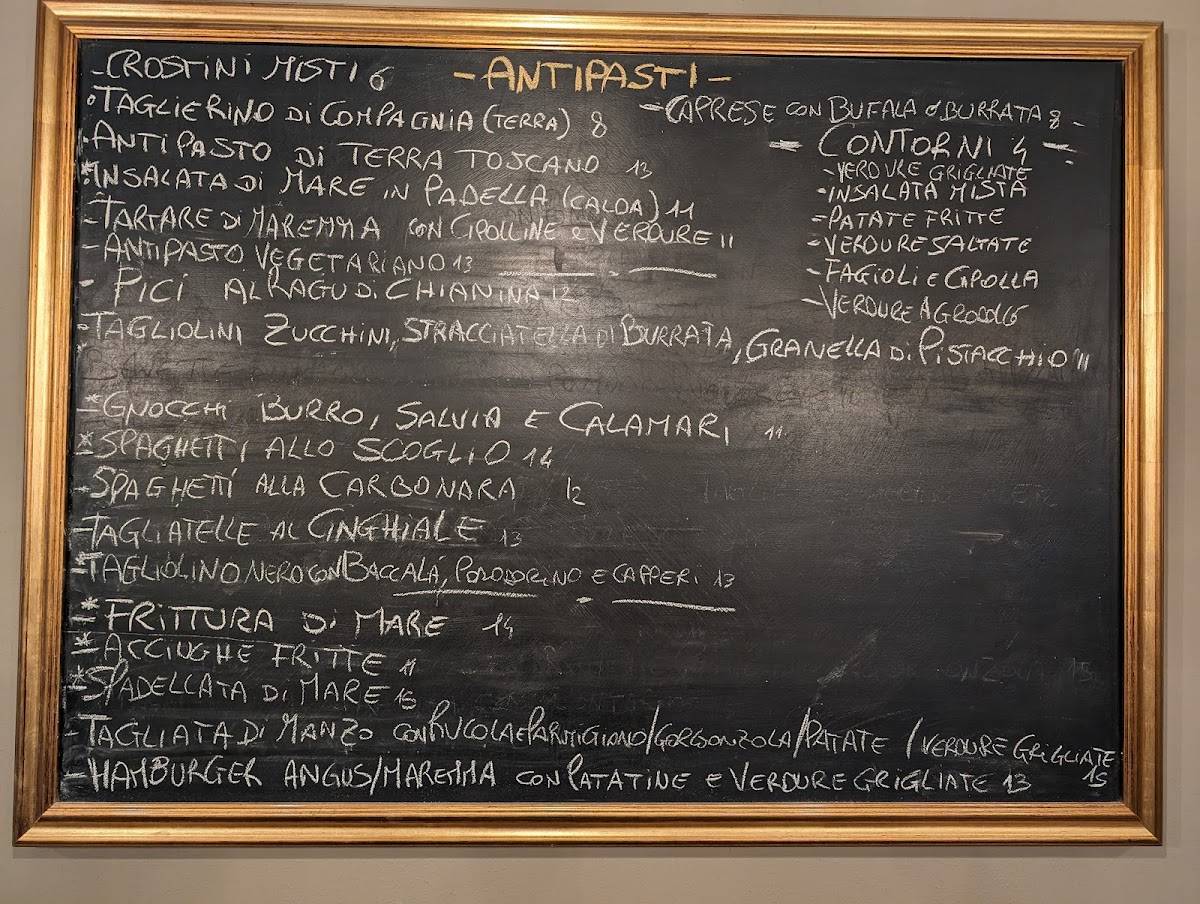 - ANTIPASTI -
- CROSTINI MISTI 6
• TAGLIERINO DI COMPAGNIA (TERRA) 8
- CAPRESE CON BUFALA O BURRATA 8 -
• ANTIPASTO DI TERRA TOSCANO 13
* INSALATA DI MARE IN PADELLA (CALDA) 11
- TARTARE DI MAREMMA CON CIPOLLINE e VERDURE 11
- ANTIPASTO VEGETARIANO 13
- CONTORNI 4 -
- VERDURE GRIGLIATE
• INSALATA MISTA
- PATATE FRITTE
- VERDURE SALTATE
- FAGIOLI E CIPOLLA
- VERDURE AGRODOLCE
- PICI AL RAGU DI CHIANINA 12
• TAGLIOLINI ZUCCHINI, STRACCIATELLA DI BURRATA, GRANELLA DI PISTACCHIO 11
* GNOCCHI BURRO, SALVIA E CALAMARI 11
* SPAGHETTI ALLO SCOGLIO 14
- SPAGHETTI ALLA CARBONARA 12
- TAGLIATELLE AL CINGHIALE 13
* TAGLIOLINO NERO CON BACCALÁ, POMODORINO E CAPPERI 13
* FRITTURA DI MARE 14
* ACCIUGHE FRITTE 11
* SPADELLATA DI MARE 15
- TAGLIATA DI MANZO CON RUCOLA E PARMIGIANO/GORGONZOLA/PATATE / VERDURE GRIGLIATE 15
- HAMBURGER ANGUS/MAREMMA CON PATATINE E VERDURE GRIGLIATE 13